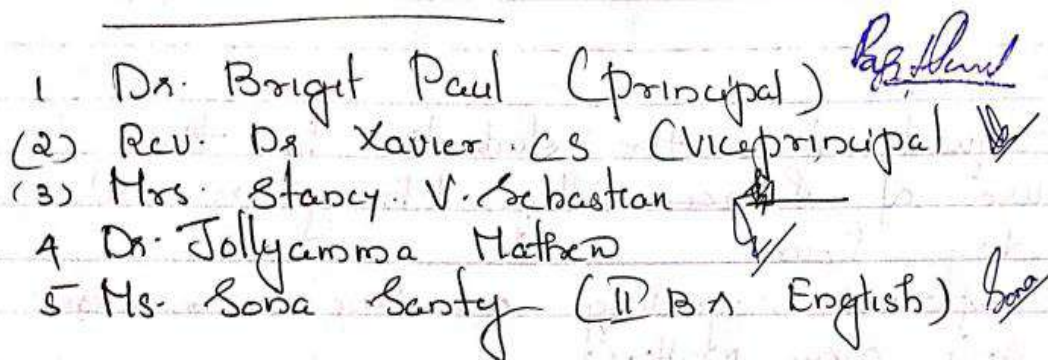 1 Dr. Brigit Paul (principal)
(2) Rev. Dr Xavier. CS (Viceprincipal
(3) Mrs. Stancy. V. Sebastian
4 Dr. Jollyamma Mathew
5 Ms. Sona Santy (II BA English) Sona